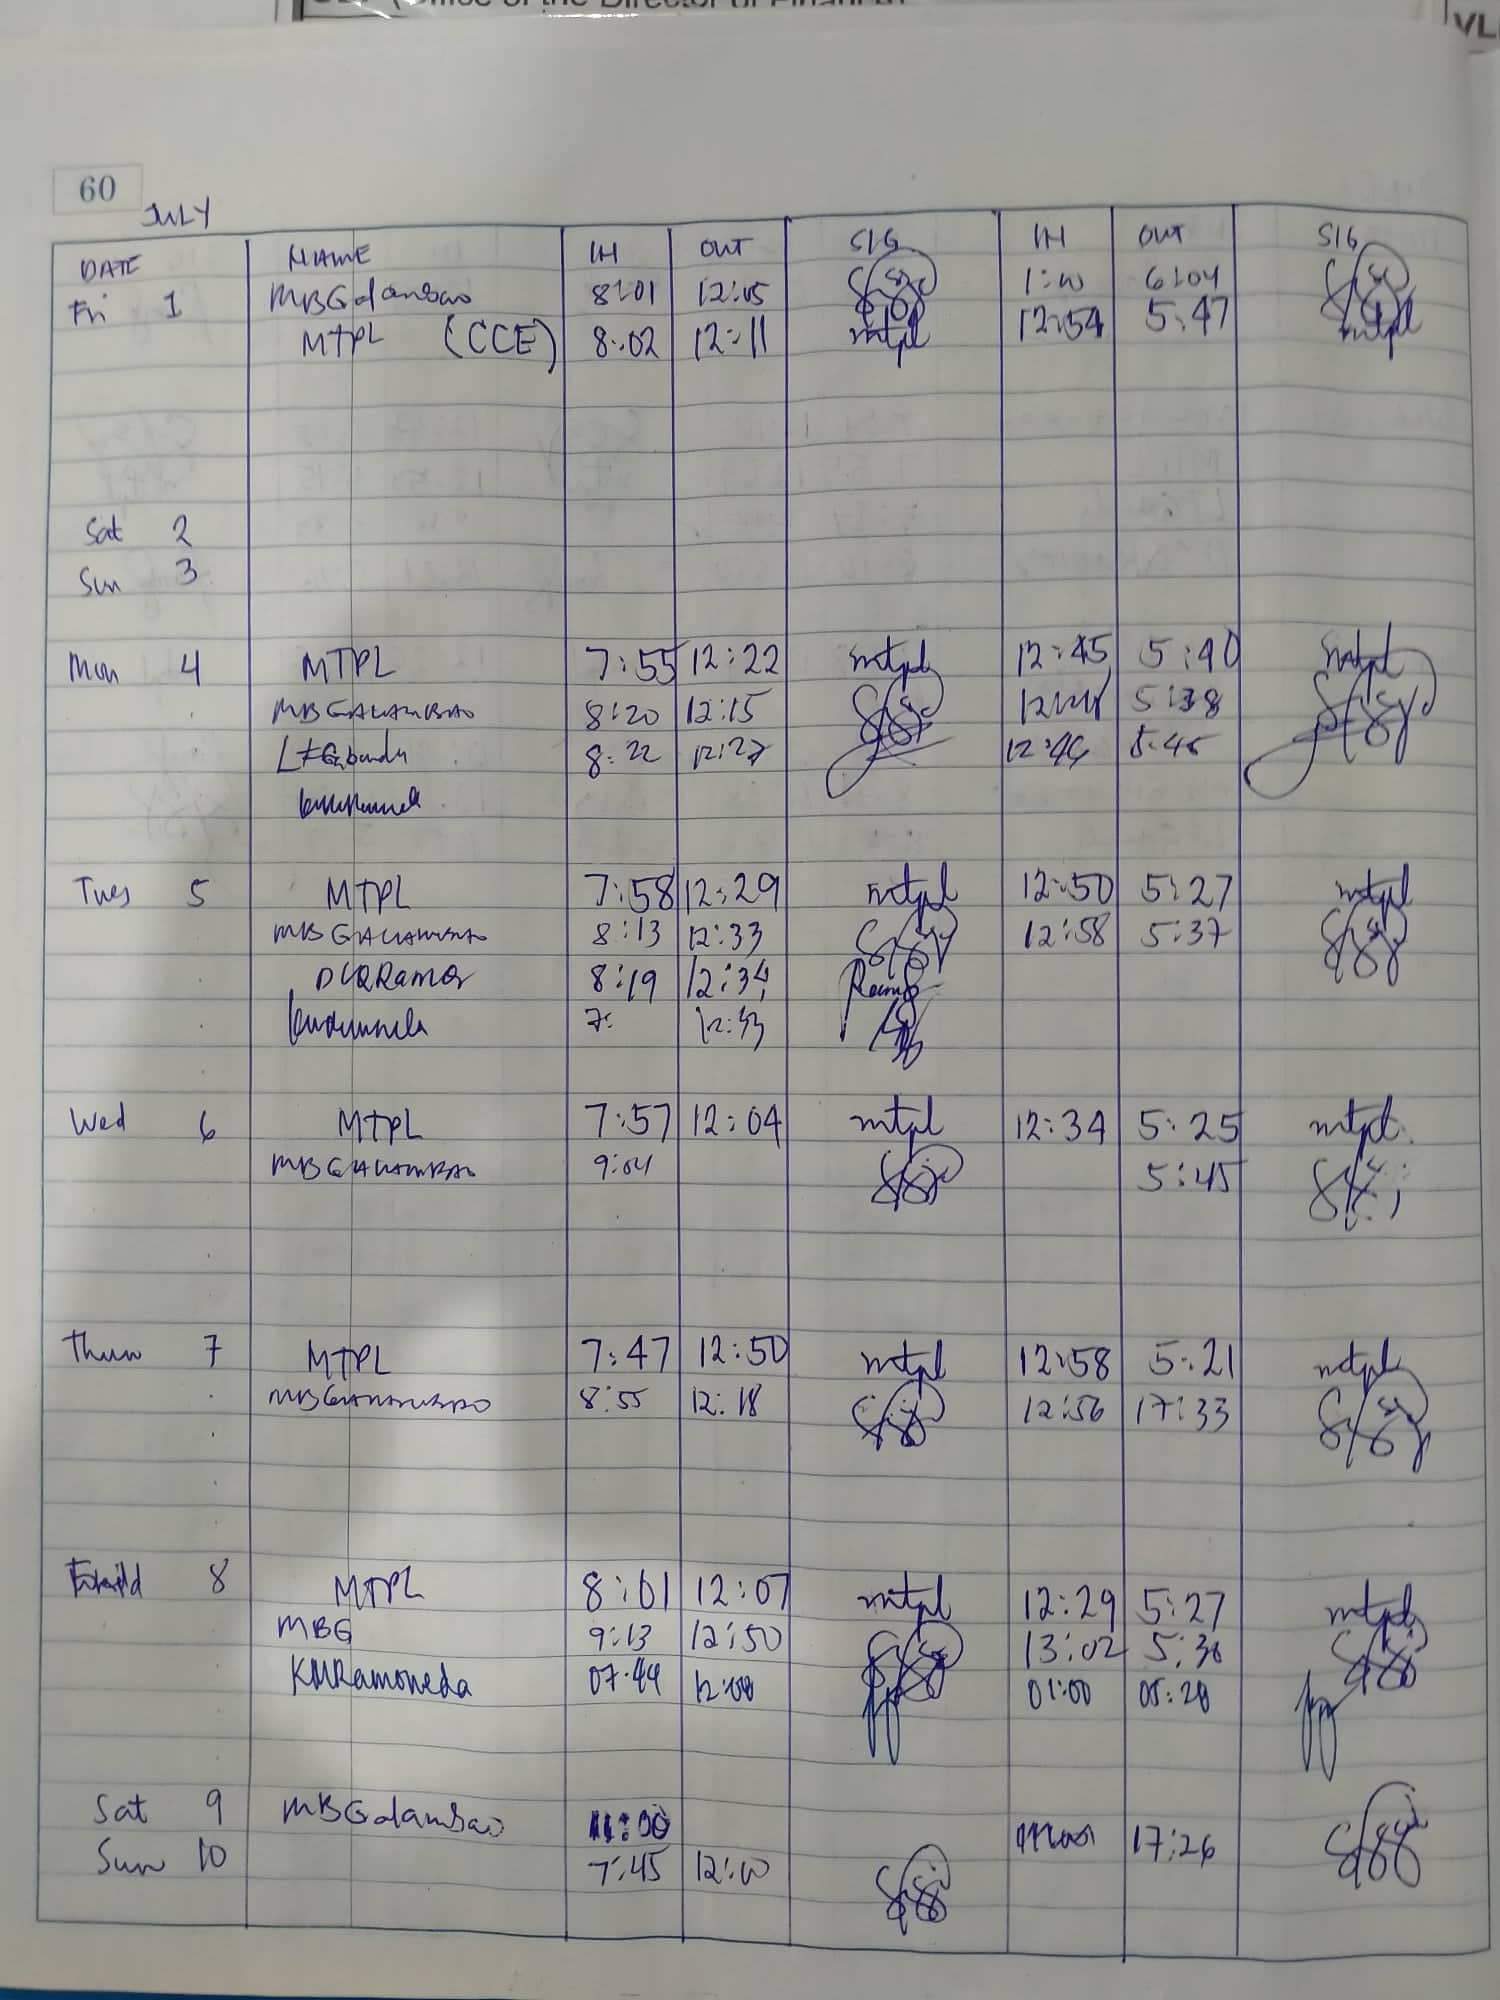 60
JULY
DATE NAME IN OUT SIG IN OUT SIG
Fri 1 MBGalambao 8:01 12:05 1:00 6:04
MTPL (CCE) 8:02 12:11 mtpl 12:54 5:47 mtpl
Sat 2
Sun 3
Mon 4 MTPL 7:55 12:22 mtpl 12:45 5:40 mtpl
MBGALAMBAO 8:20 12:15 5:38
8:22 12:27 12:44 5:45
Tues 5 MTPL 7:58 12:29 mtpl 12:50 5:27 mtpl
MBGALAMBAO 8:13 12:33 12:58 5:37
Ramos 8:19 12:34
7: 12:33
Wed 6 MTPL 7:57 12:04 mtpl 12:34 5:25 mtpl
MBGALAMBAO 9:04 5:45
Thurs 7 MTPL 7:47 12:50 mtpl 12:58 5:21 mtpl
MBGALAMBAO 8:55 12:18 12:56 17:33
8 MTPL 8:01 12:07 mtpl 12:29 5:27 mtpl
MBG 9:13 12:50 13:02 5:36
KMRamoneda 07:44 12:00 01:00 05:20
Sat 9 MBGalambao 17:26
Sun 10 7:45 12:00